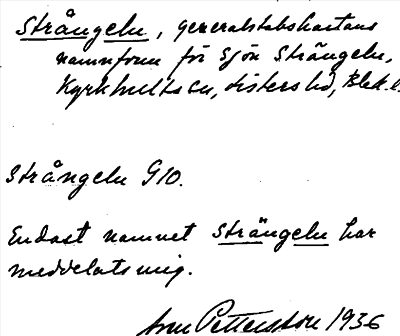 Strångeln, generalstabskartans
namnform för sjön Strängeln,
Kyrkhults sn, Listers hd, Blek. l.
Strångeln G10.
Endast namnet Strängeln har
meddelats mig.
Pettersson 1936